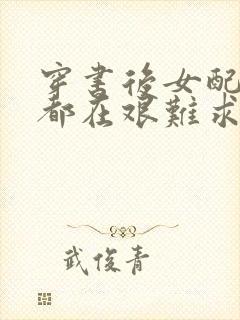 穿書後女配
都在艱難求
武俊青